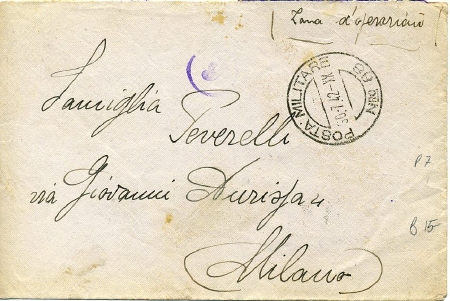 Zona d'operazioni
POSTA MILITARE NR. 88
30.7.42.XX
Famiglia
Peverelli
via Giovanni
Milano
P7
B 15